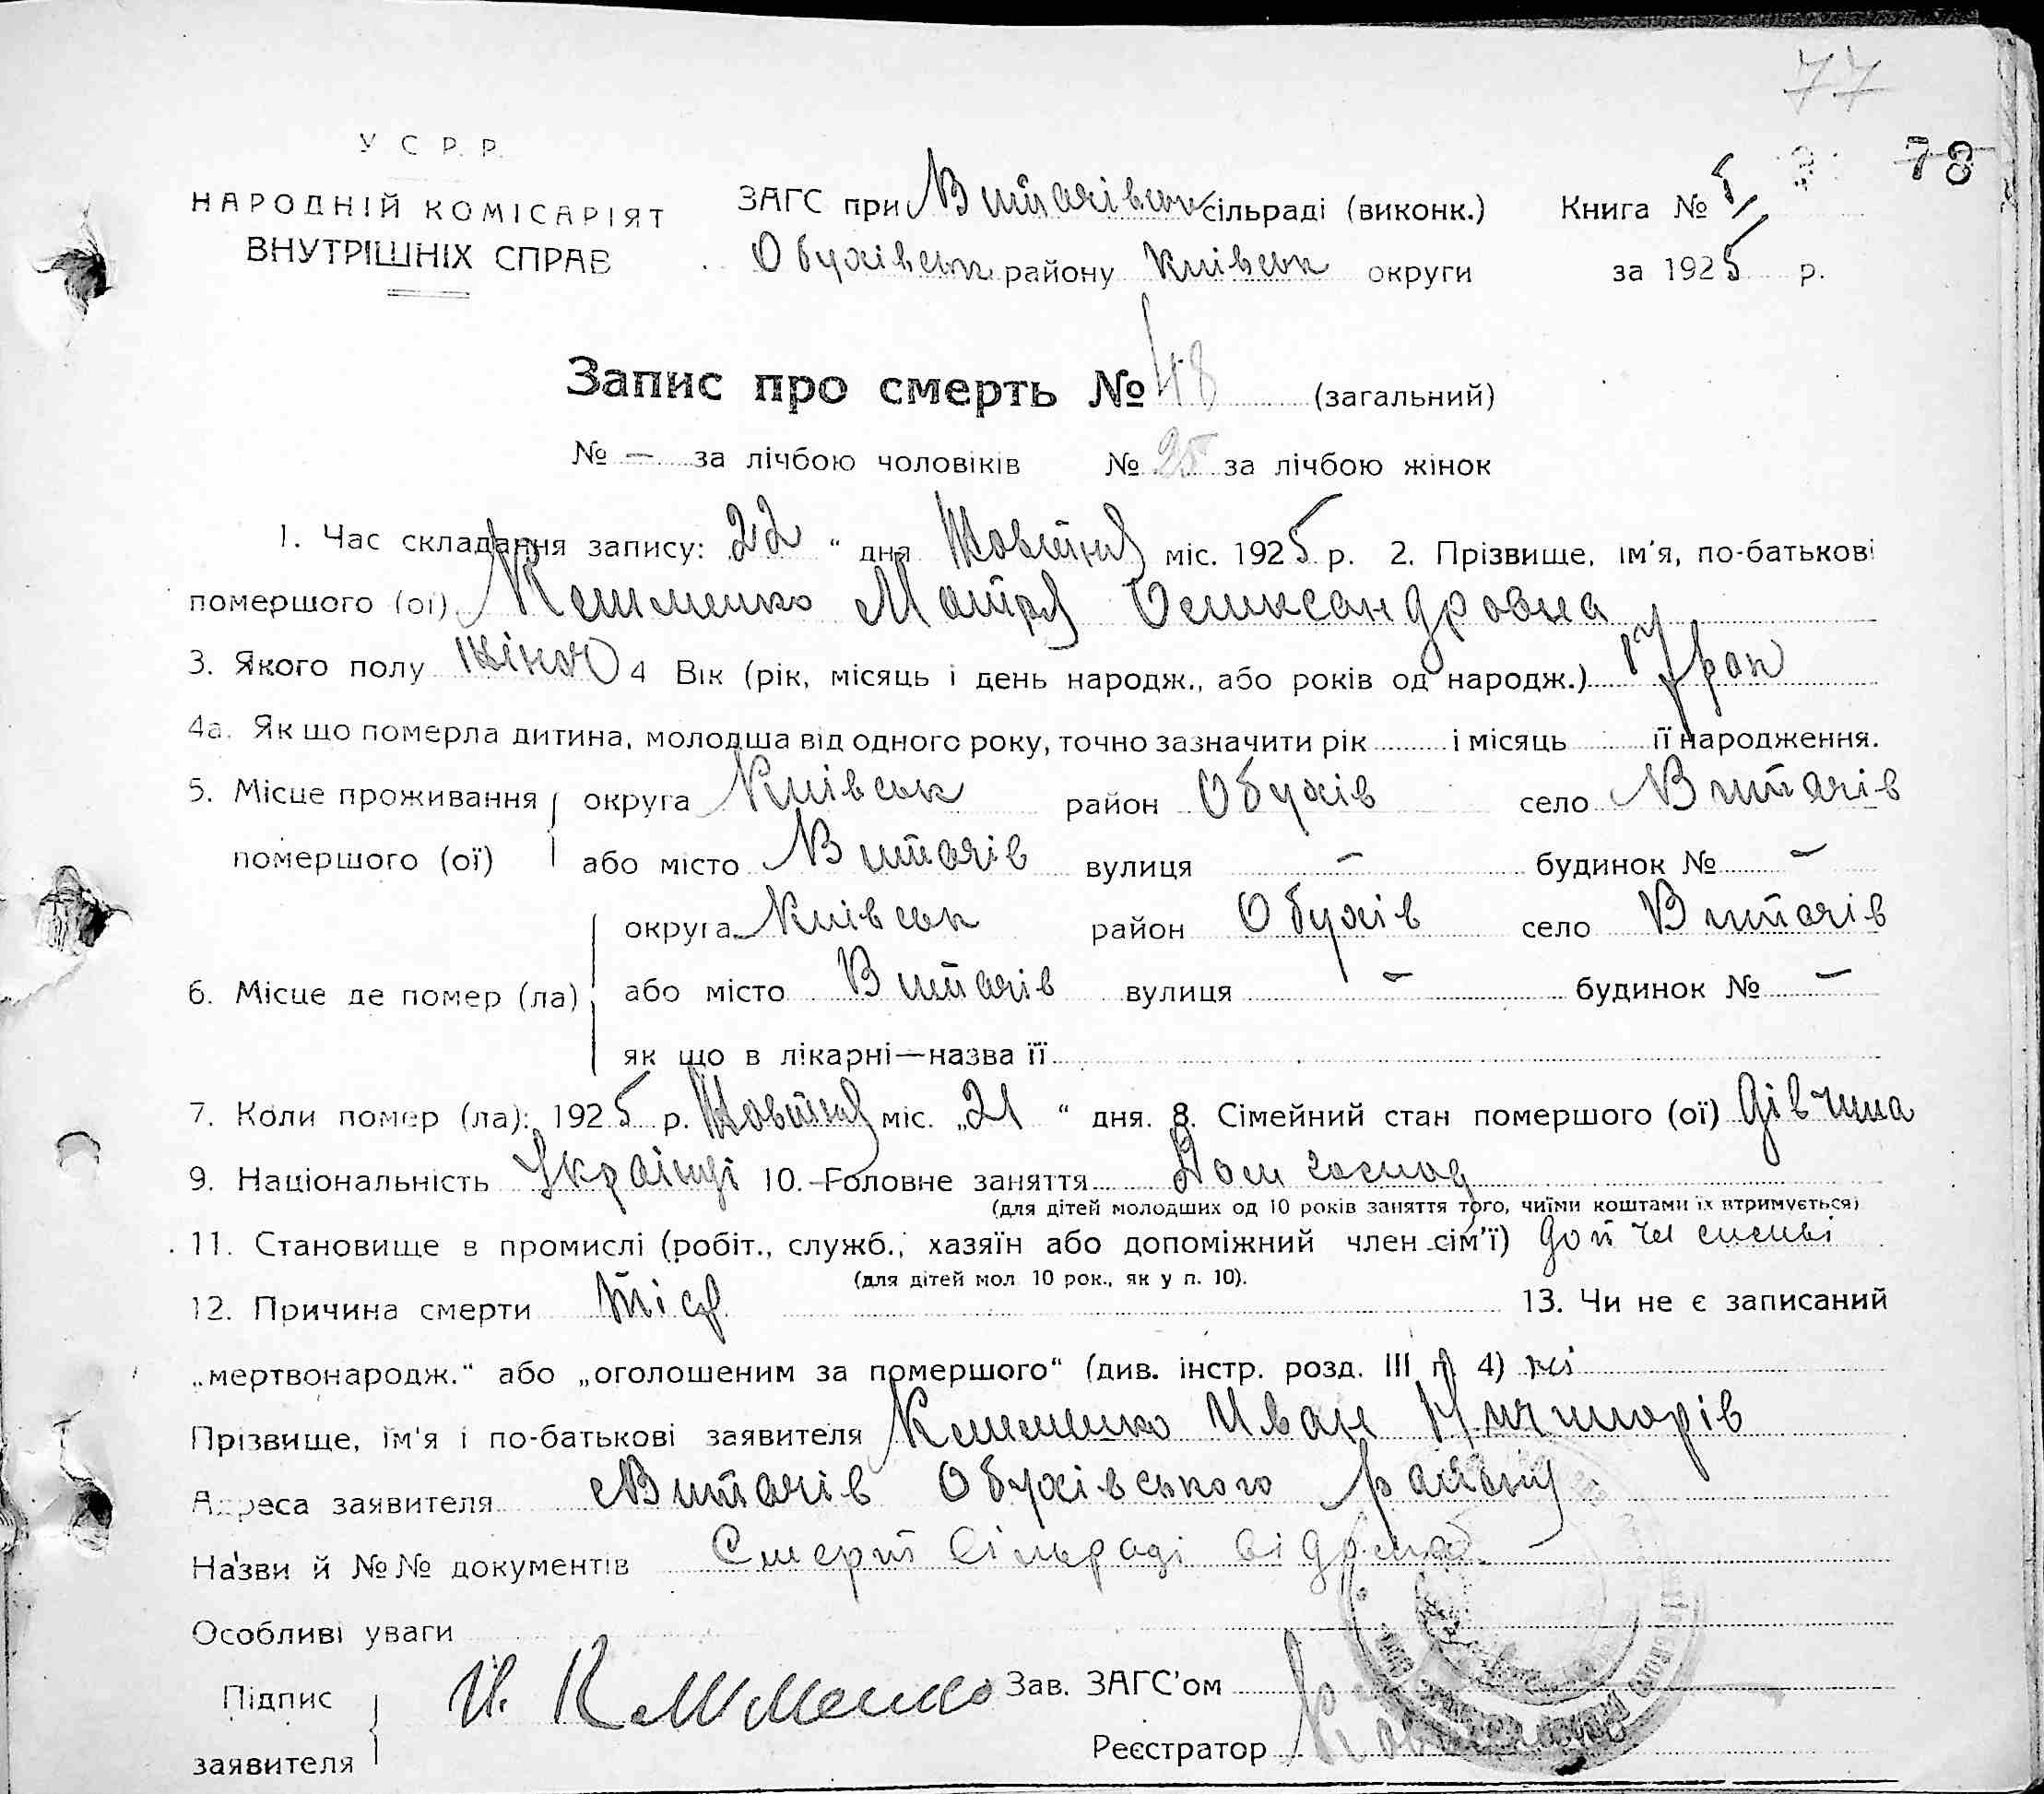 77
78
У С Р. Р.
НАРОДНІЙ КОМІСАРІЯТ
ВНУТРІШНІХ СПРАВ
ЗАГС при Витачівськ сільраді (виконк.) Книга №
Обухівськ району Київськ округи за 1925 р.
Запис про смерть № 48 (загальний)
№ — за лічбою чоловіків № 25 за лічбою жінок
1. Час складання запису: 22 “ дня Жовтня міс. 1925 р. 2. Прізвище, ім'я, по-батькові
помершого (ої) Клименко Мотря Олександровна
3. Якого полу жіноч 4 Вік (рік, місяць і день народж., або років од народж.) 17 рок
4а. Як що померла дитина, молодша від одного року, точно зазначити рік і місяць її народження.
5. Місце проживання округа Київськ район Обухів село Витачів
помершого (ої) або місто Витачів вулиця — будинок № —
округа Київськ район Обухів село Витачів
6. Місце де помер (ла) або місто Витачів вулиця — будинок № —
як що в лікарні—назва її
7. Коли помер (ла): 1925 р. Жовтня міс. „21 “ дня. 8. Сімейний стан помершого (ої) дівчина
9. Національність Українці 10. Головне заняття Дом господ
(для дітей молодших од 10 років заняття того, чиїми коштами їх втримується)
11. Становище в промислі (робіт., служб., хазяїн або допоміжний член сім'ї) доп чл сиємі
(для дітей мол. 10 рок., як у п. 10).
12. Причина смерти тіф 13. Чи не є записаний
„мертвонародж.“ або „оголошеним за помершого“ (див. інстр. розд. III п. 4) ні
Прізвище, ім'я і по-батькові заявителя Клименко Иван
Адреса заявителя Витачів Обухівського району
Назви й №№ документів Смерть Сільраді відома
Особливі уваги
Підпис И. Клименко Зав. ЗАГС'ом
заявителя Реєстратор